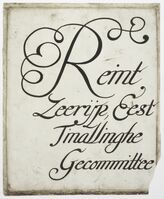 Reint
Zeerijp, Eest
Tmallinghe
Gecommittee